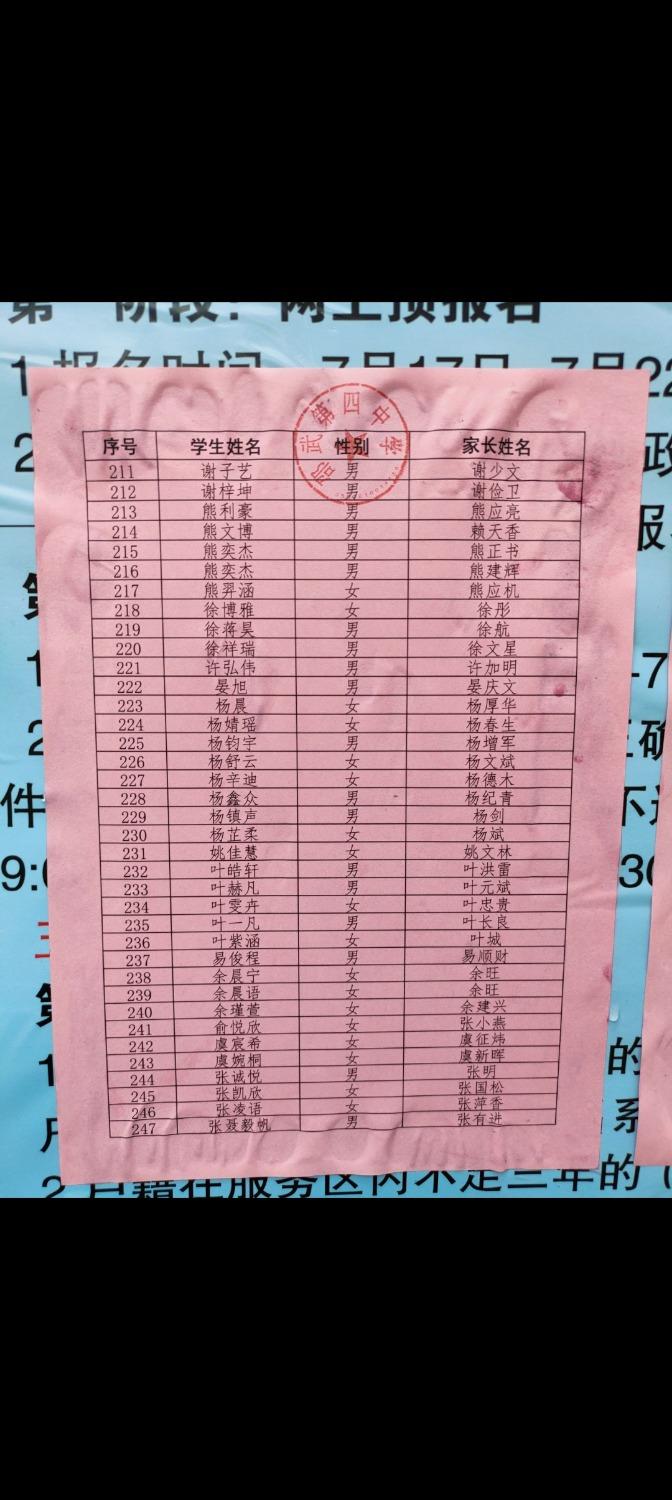 第一阶段：网上预报名
1 报名时间 7月17日-7月22
2
政
报
序号 学生姓名 性别 家长姓名
邵武第四中学
211 谢子艺 男 谢少文
212 谢梓坤 男 谢俭卫
213 熊利豪 男 熊应亮
214 熊文博 男 赖天香
215 熊奕杰 男 熊正书
216 熊奕杰 男 熊建辉
217 熊羿涵 女 熊应机
218 徐博雅 女 徐彤
219 徐蒋昊 男 徐航
220 徐祥瑞 男 徐文星
221 许弘伟 男 许加明
222 晏旭 男 晏庆文
223 杨晨 女 杨厚华
224 杨婧瑶 女 杨春生
225 杨钧宇 男 杨增军
226 杨舒云 女 杨文斌
227 杨辛迪 女 杨德木
228 杨鑫众 男 杨纪青
229 杨镇声 男 杨剑
230 杨芷柔 女 杨斌
231 姚佳慧 女 姚文林
232 叶皓轩 男 叶洪雷
233 叶赫凡 男 叶元斌
234 叶雯卉 女 叶忠贵
235 叶一凡 男 叶长良
236 叶紫涵 女 叶城
237 易俊程 男 易顺财
238 余晨宁 女 余旺
239 余晨语 女 余旺
240 余瑾萱 女 余建兴
241 俞悦欣 女 张小燕
242 虞宸希 女 虞征炜
243 虞婉桐 女 虞新晖
244 张诚悦 男 张明
245 张凯欣 女 张国松
246 张凌语 女 张萍香
247 张聂毅帆 男 张有进
件
9:0
30
的
系
2 户籍在服务区内不足三年的（